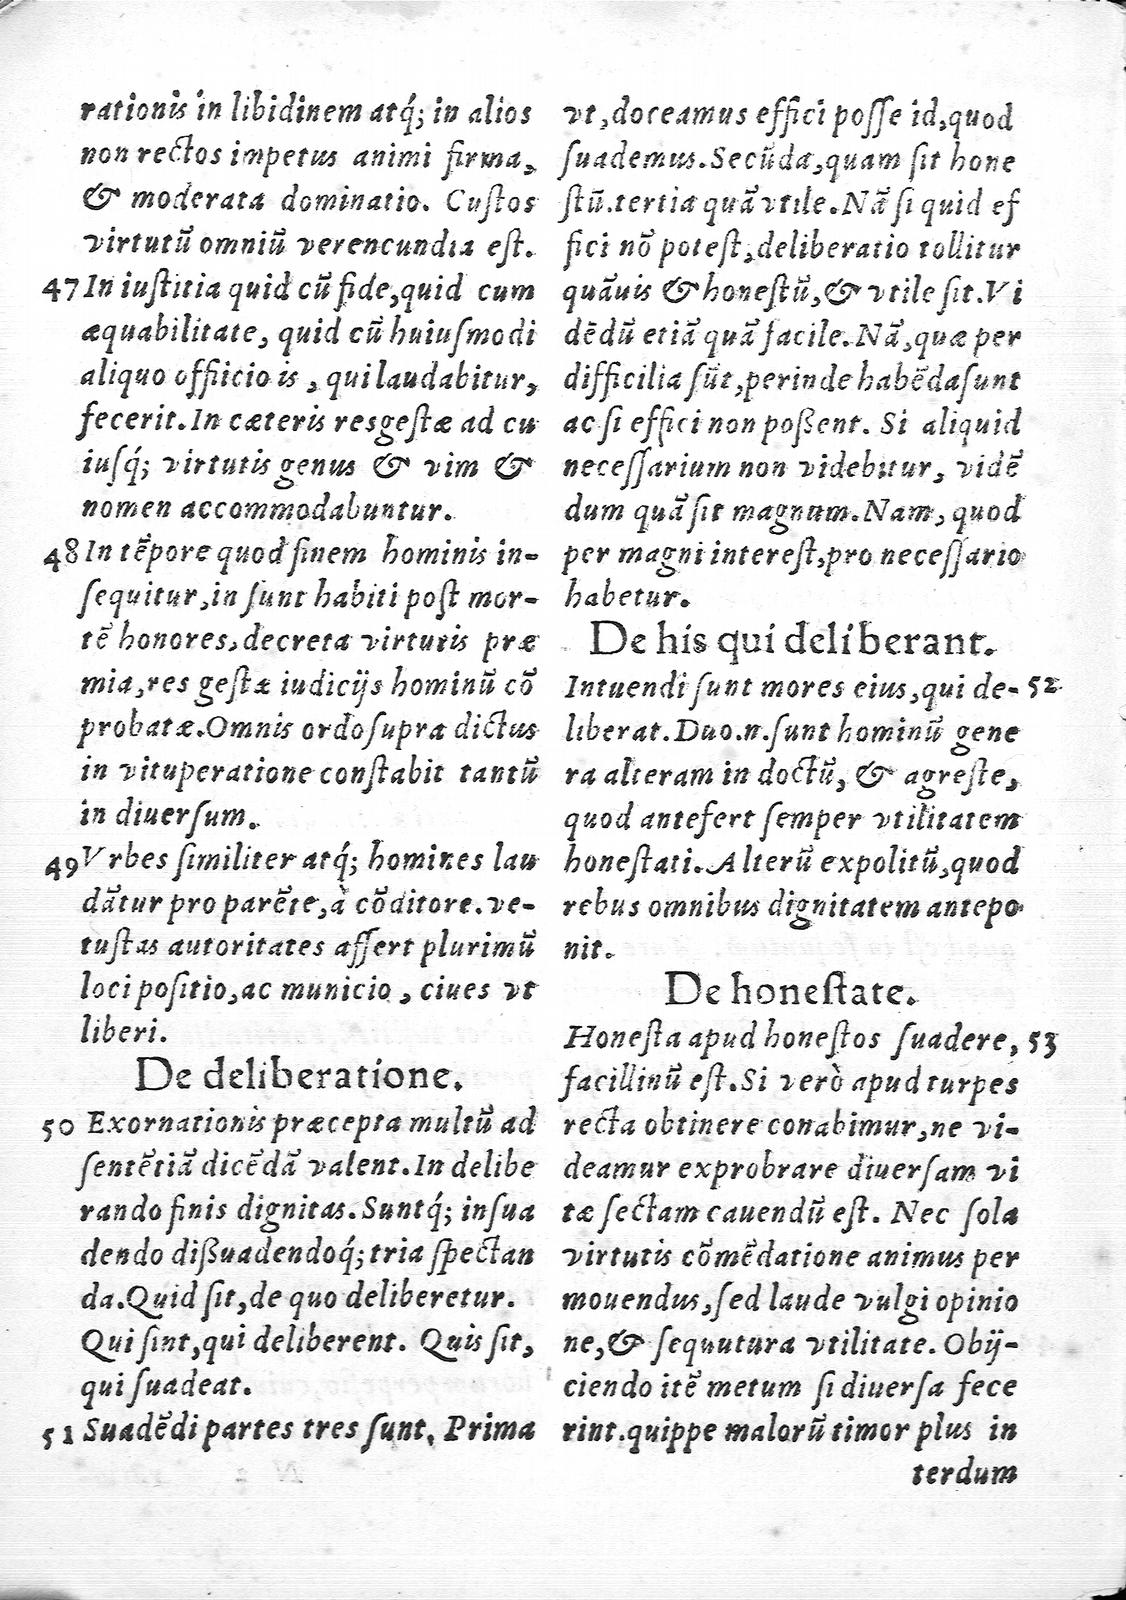 rationis in libidinem atq́; in alios
non rectos impetus animi firma,
& moderata dominatio. Cuſtos
virtutū omniū verencundia eſt.
47 In iuſtitia quid cū fide, quid cum
æquabilitate, quid cū huiuſmodi
aliquo offiicio is, qui laudabitur,
fecerit. In cæteris resgeſtæ ad cu
iuſq́; virtutis genus & vim &
nomen accommodabuntur.
48 In tēpore quod finem hominis in-
ſequitur, in ſunt habiti poſt mor-
tē honores, decreta virtutis præ
mia, res geſtæ iudicijs hominū cō
probatæ. Omnis ordo ſupra dictus
in vituperatione conſtabit tantū
in diuerſum.
49 Vrbes ſimiliter atq́; homines lau
dātur pro parēte, à cōditore. ve-
tuſtas autoritates affert plurimū
loci poſitio, ac municio, ciues vt
liberi.
De deliberatione.
50 Exornationis præcepta multū ad
ſentētiā dicēdā valent. In delibe
rando finis dignitas. Suntq́; in ſua
dendo dißuadendoq́; tria ſpectan
da. Quid ſit, de quo deliberetur.
Qui ſint, qui deliberent. Quis ſit,
qui ſuadeat.
51 Suadēdi partes tres ſunt, Prima
vt, doceamus effici poſſe id, quod
ſuademus. Secūda, quam ſit hone
ſtū. tertia quā vtile. Nā ſi quid ef
fici nō poteſt, deliberatio tollitur
quāuis & honeſtū, & vtile ſit. Vi
dēdū etiā quā facile. Nā, quæ per
difficilia ſūt, perinde habēda ſunt
ac ſi effici non poßent. Si aliquid
neceſſarium non videbitur, vidē
dum quā ſit magnum. Nam, quod
per magni intereſt, pro neceſſario
habetur.
De his qui deliberant.
Intuendi ſunt mores eius, qui de- 52
liberat. Duo. n. ſunt hominū gene
ra alteram in doctū, & agreſte,
quod antefert ſemper vtilitatem
honeſtati. Alterū expolitū, quod
rebus omnibus dignitatem antepo
nit.
De honeſtate.
Honeſta apud honeſtos ſuadere, 53
facillinū eſt. Si verò apud turpes
recta obtinere conabimur, ne vi-
deamur exprobrare diuerſam vi
tæ ſectam cauendū eſt. Nec ſola
virtutis cōmēdatione animus per
mouendus, ſed laude vulgi opinio
ne, & ſequutura vtilitate. Obij-
ciendo itē metum ſi diuerſa fece
rint. quippe malorū timor plus in
terdum